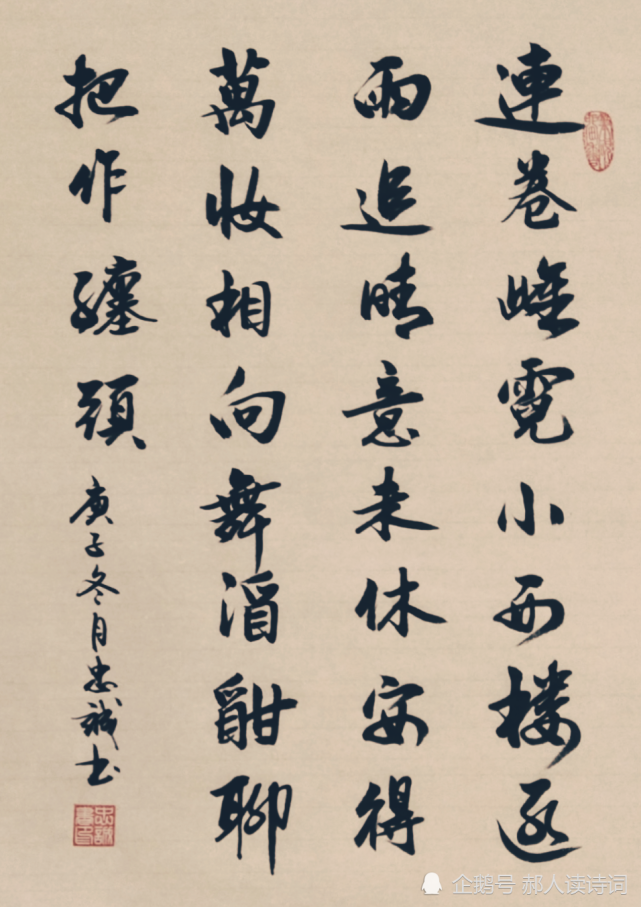 連卷雌霓小西楼逐
雨追晴意未休安得
萬妝相向舞酒酣聊
把作纏頭
庚子冬月忠誠书
忠誠書印
企鹅号 郝人读诗词